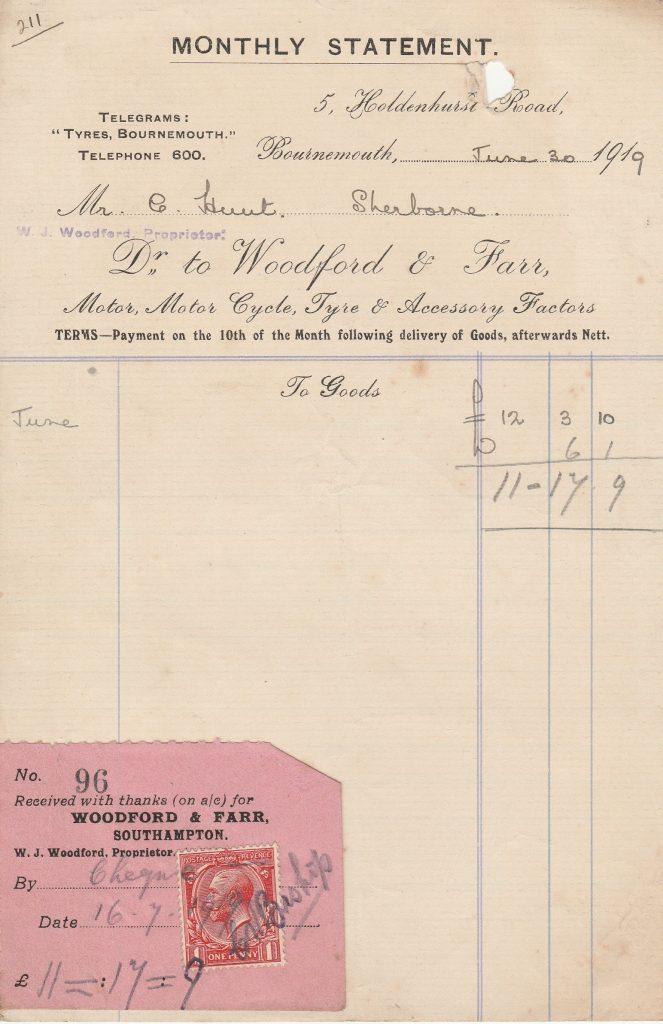 211
MONTHLY STATEMENT.
5, Holdenhurst Road,
TELEGRAMS:
"TYRES, BOURNEMOUTH."
TELEPHONE 600.
Bournemouth, June 30 1919
Mr. C. Hunt. Sherborne.
W. J. Woodford, Proprietor.
Dr. to Woodford & Farr,
Motor, Motor Cycle, Tyre & Accessory Factors
TERMS—Payment on the 10th of the Month following delivery of Goods, afterwards Nett.
To Goods
June 12 3 10
6 1
11 - 17 . 9
No. 96
Received with thanks (on a/c) for
WOODFORD & FARR,
SOUTHAMPTON.
W. J. Woodford, Proprietor.
By Cheque
Date 16 - 7 - 19
POSTAGE REVENUE
1 ONE PENNY 1
£ 11 = : 17 = 9